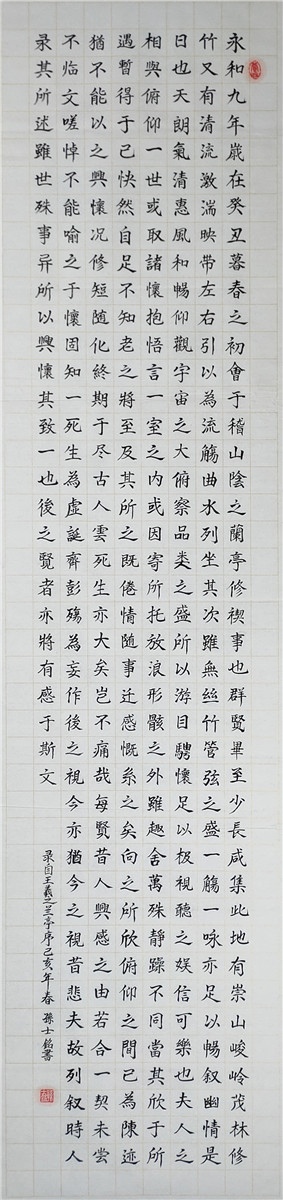 永和九年歲在癸丑暮春之初會于稽山陰之蘭亭修禊事也群賢畢至少長咸集此地有崇山峻岭茂林修
竹又有清流激湍映帶左右引以為流觴曲水列坐其次雖無絲竹管弦之盛一觴一咏亦足以暢叙幽情是
日也天朗氣清惠風和暢仰觀宇宙之大俯察品类之盛所以游目騁懷足以极視聽之娱信可樂也夫人之
相與俯仰一世或取諸懷抱悟言一室之内或因寄所托放浪形骸之外雖趣舍萬殊靜躁不同當其欣于所
遇暫得于己快然自足不知老之將至及其所之既倦情随事迁感慨系之矣向之所欣俯仰之間已為陳迹
猶不能以之興懷况修短随化終期于尽古人雲死生亦大矣岂不痛哉每賢昔人興感之由若合一契未尝
不临文嗟悼不能喻之于懷固知一死生為虚誕齊彭殤為妄作後之視今亦猶今之視昔悲夫故列叙時人
录其所述雖世殊事异所以興懷其致一也後之賢者亦將有感于斯文
录自王羲之兰亭序己亥年春 孫士銘書